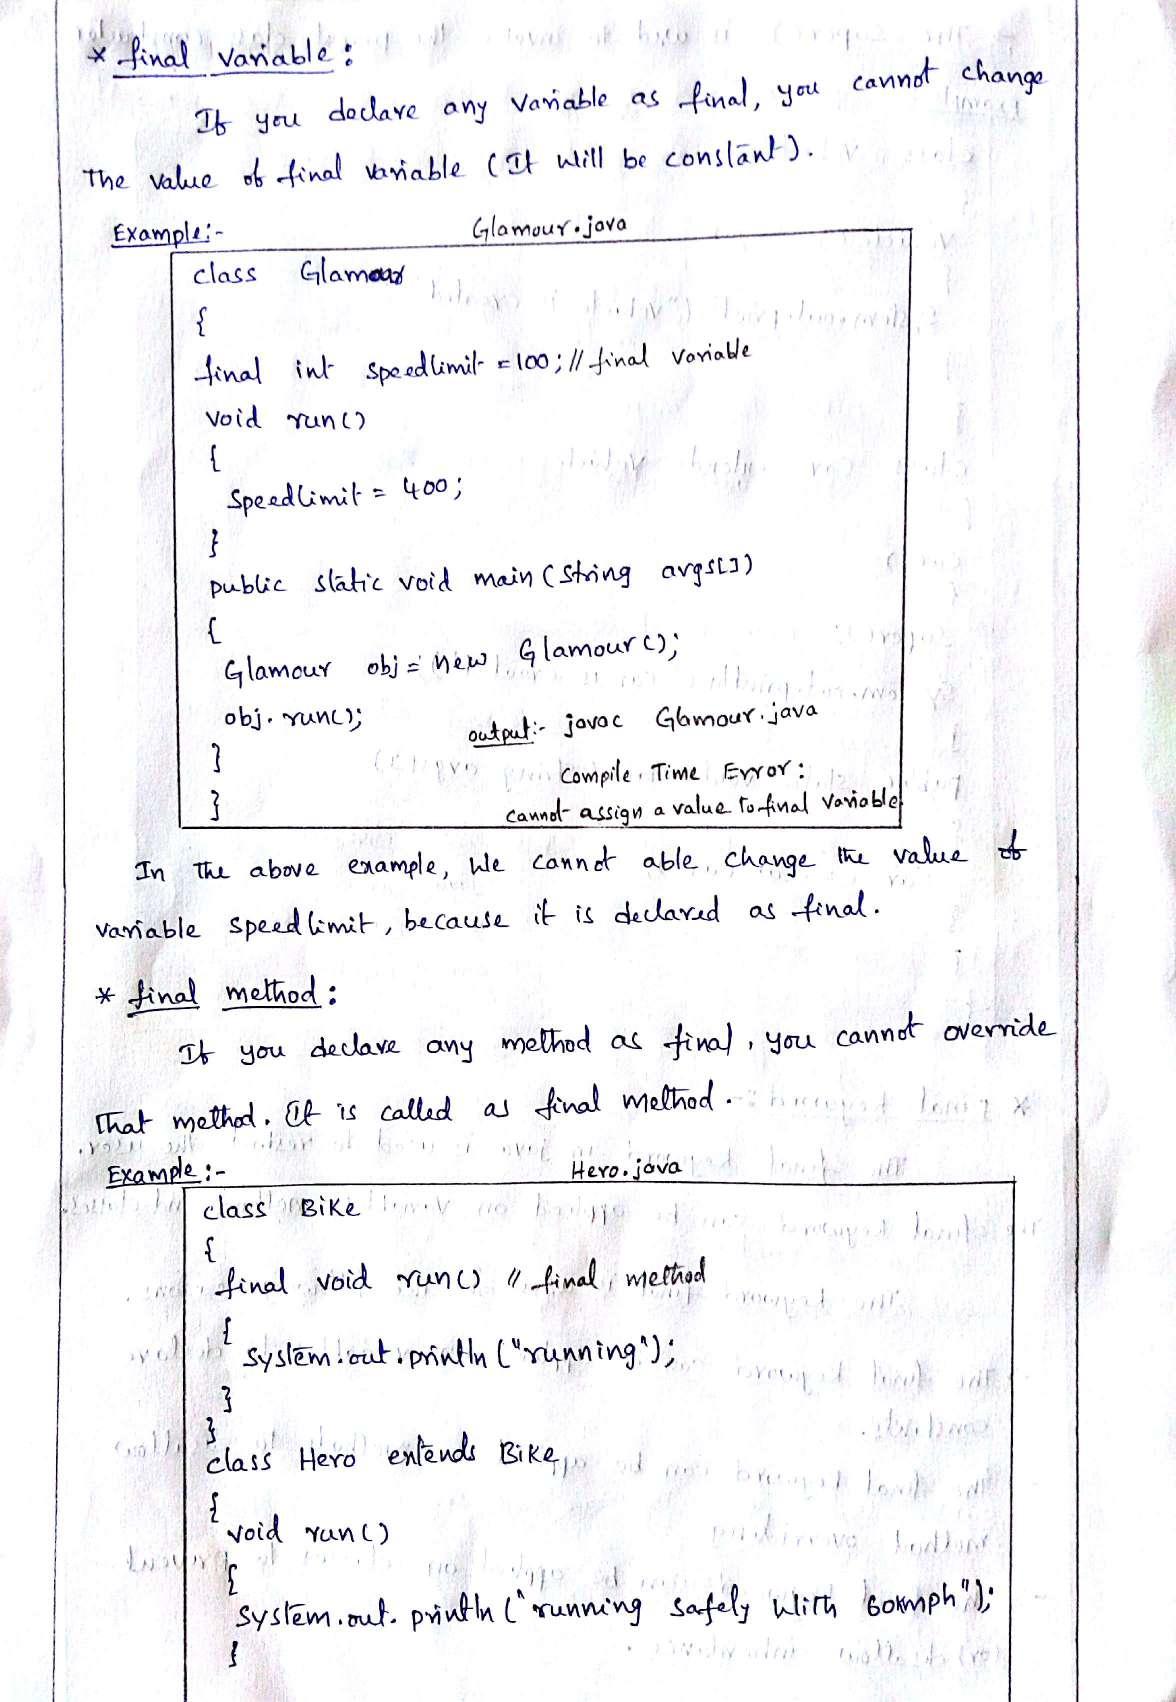 * final variable :
If you declare any variable as final, you cannot change
The value of final variable (It will be constant).
Example:- Glamour.java
class Glamour
{
final int speedlimit =100; // final variable
void run()
{
speedlimit = 400;
}
public static void main (String args[])
{
Glamour obj = new Glamour();
obj.run();
output:- javac Glamour.java
}
Compile Time Error :
}
cannot assign a value to final variable
In The above example, we cannot able change the value of
variable speedlimit, because it is declared as final.
* final method :
If you declare any method as final, you cannot override
That method. It is called as final method.
Example :- Hero.java
class Bike
{
final void run() // final method
{
system.out.println ("running");
}
}
class Hero extends Bike
{
void run()
{
system.out.println ("running safely with 60kmph");
}